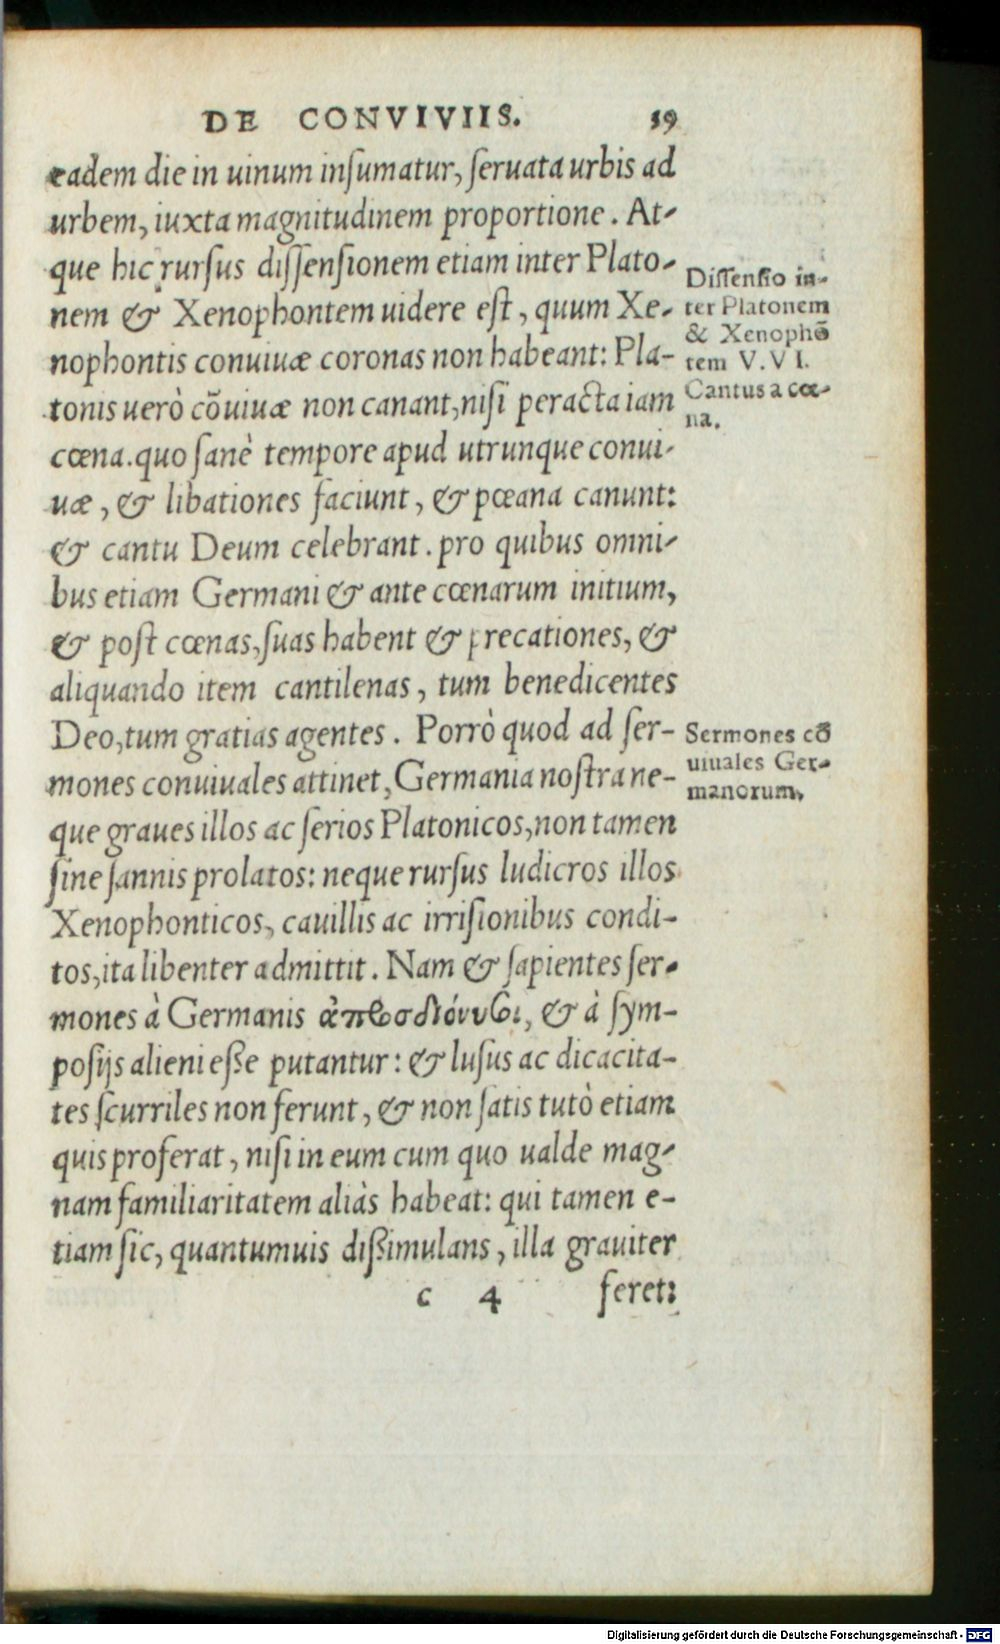 DE CONVIVIIS. 39
eadem die in uinum insumatur, seruata urbis ad
urbem, iuxta magnitudinem proportione. At-
que hic rursus dissensionem etiam inter Plato-
nem & Xenophontem uidere est, quum Xe-
nophontis conuiuæ coronas non habeant: Pla-
tonis uerò cõuiuæ non canant, nisi peracta iam
cœna. quo sanè tempore apud utrunque conui-
uæ, & libationes faciunt, & pœana canunt:
& cantu Deum celebrant. pro quibus omni-
bus etiam Germani & ante cœnarum initium,
& post cœnas, suas habent & precationes, &
aliquando item cantilenas, tum benedicentes
Deo, tum gratias agentes. Porrò quod ad ser-
mones conuiuales attinet, Germania nostra ne-
que graues illos ac serios Platonicos, non tamen
sine sannis prolatos: neque rursus ludicros illos
Xenophonticos, cauillis ac irrisionibus condi-
tos, ita libenter admittit. Nam & sapientes ser-
mones à Germanis ἀπροσδιόνυσοι, & à sym-
posijs alieni esse putantur: & lusus ac dicacita-
tes scurriles non ferunt, & non satis tutò etiam
quis proferat, nisi in eum cum quo ualde mag-
nam familiaritatem aliàs habeat: qui tamen e-
tiam sic, quantumuis dissimulans, illa grauiter
c 4 feret:
Dissensio in-
ter Platonem
& Xenophõ
tem V. VI.
Cantus a cœ-
na.
Sermones cõ
uiuales Ger-
manorum.
Digitalisierung gefördert durch die Deutsche Forschungsgemeinschaft - DFG